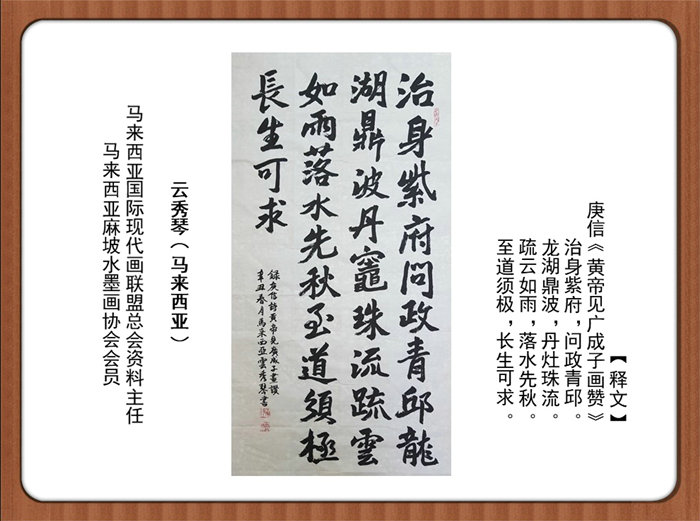 【释文】
庚信《黄帝见广成子画赞》
治身紫府，问政青邱。
龙湖鼎波，丹灶珠流。
疏云如雨，落水先秋。
至道须极，长生可求。
治身紫府問政青邱龍
湖鼎波丹竈珠流疏雲
如雨落水先秋至道須極
長生可求
錄庾信詩黃帝見廣成子畫讚
辛丑春月馬來西亞雲秀琴書
云秀琴（马来西亚）
马来西亚国际现代画联盟总会资料主任
马来西亚麻坡水墨画协会会员